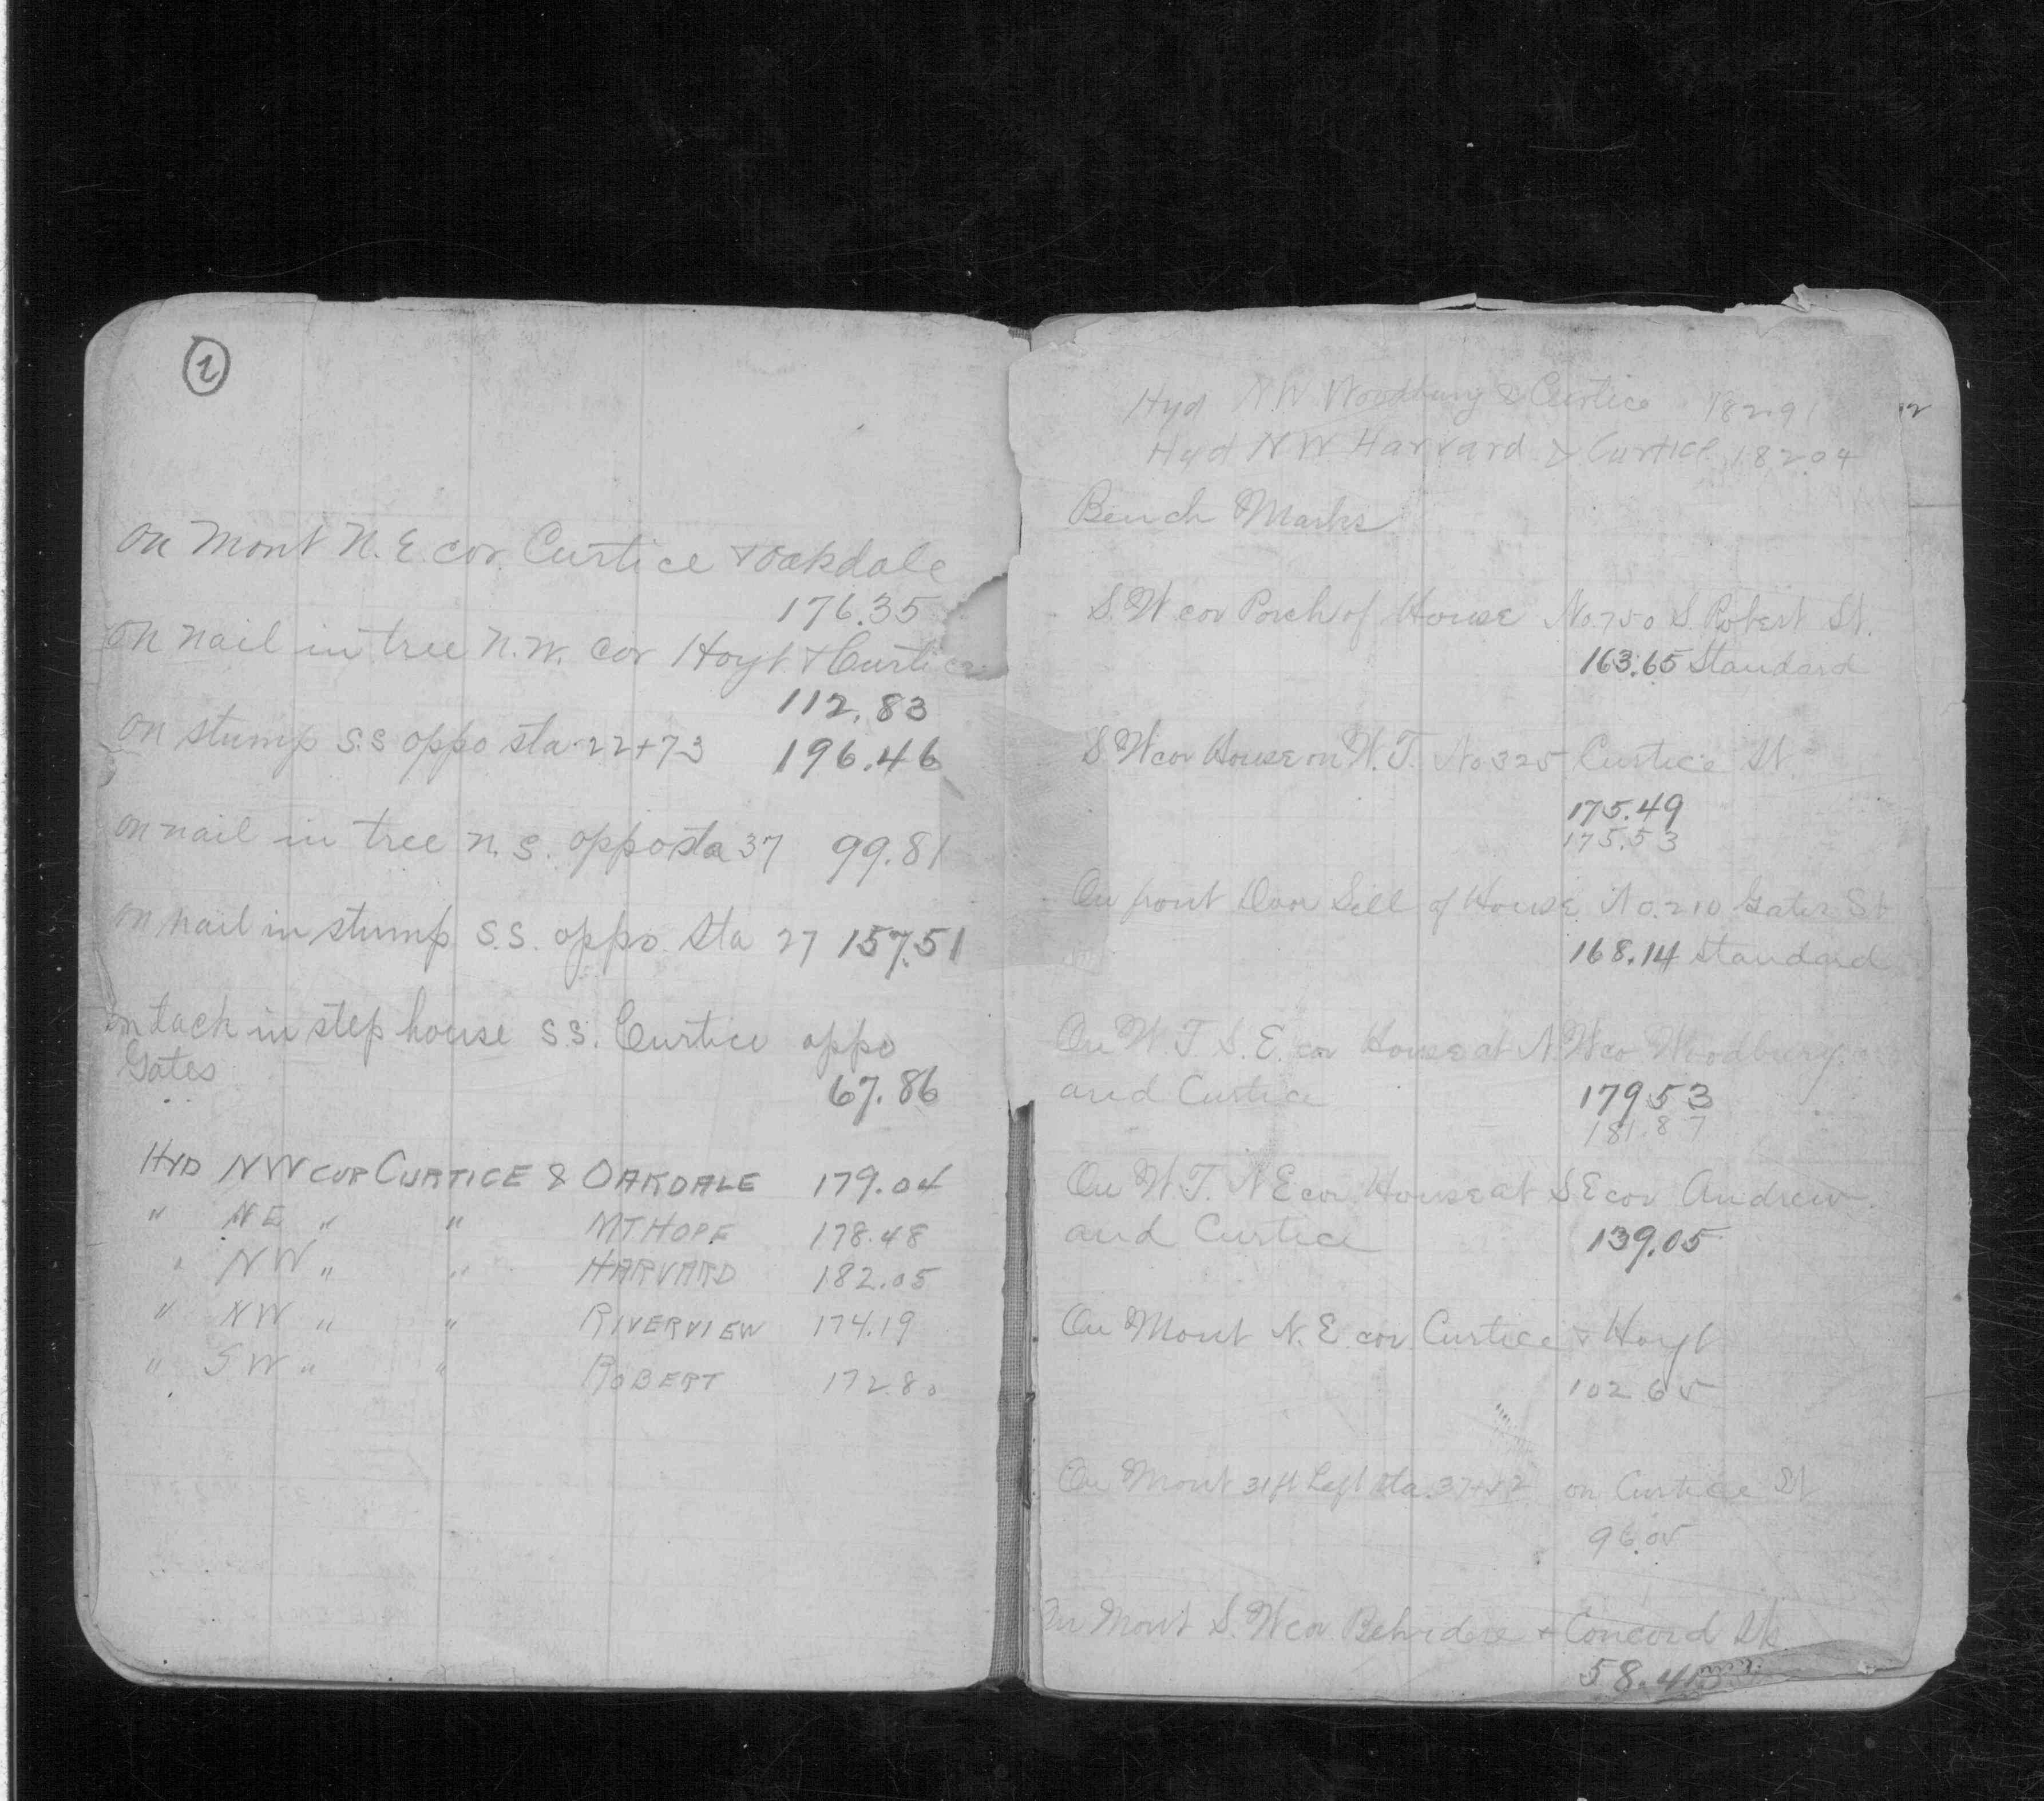 1
On Mont N.E. cor. Curtice & Oakdale
176.35
On nail in tree N.W. cor Hoyt & Curtice
112.83
On stump S.S oppo sta 22+73 196.46
on nail in tree N.S. oppo sta 37 99.81
on nail in stump S.S. oppo. Sta 27 157.51
on tack in step house S.S. Curtice oppo
Gates
67.86
HYD NW COR CURTICE & OAKDALE 179.04
" NE " " MT HOPE 178.48
" NW " " HARVARD 182.05
" NW " " RIVERVIEW 174.19
" SW " " ROBERT 172.80
2
Hyd N.W. Woodbury & Curtice 182.91
Hyd NW Harvard & Curtice 182.04
Bench Marks
S.W cor Porch of House No 750 S. Robert St.
163.65 Standard
S.W cor House on W.T. No 325 Curtice St.
175.49
175.53
On front Door Sill of House No. 210 Gates St
168.14 Standard
On W.T. S.E. cor House at N.W co Woodbury
and Curtice 179.53
181.87
On W.T. N E cor House at S E cor Andrew
and Curtice 139.05
On Mont N.E. cor. Curtice & Hoyt
102.65
On Mont 31 ft Left sta. on Curtice St
96.05
On Mont S.W cor. Belvidere & Concord Sts
58.41